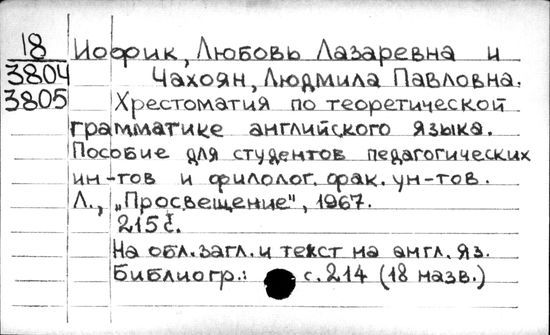 18 Иофик, Любовь Лазаревна и
3804 Чахоян, Людмила Павловна.
3805 Хрестоматия по теоретической
грамматике английского языка.
Пособие для студентов педагогических
ин-тов и филолог. фак. ун-тов.
Л., „Просвещение", 1967.
215 с.
На обл. загл. и текст на англ. яз.
Библиогр.: с. 214 (18 назв.)